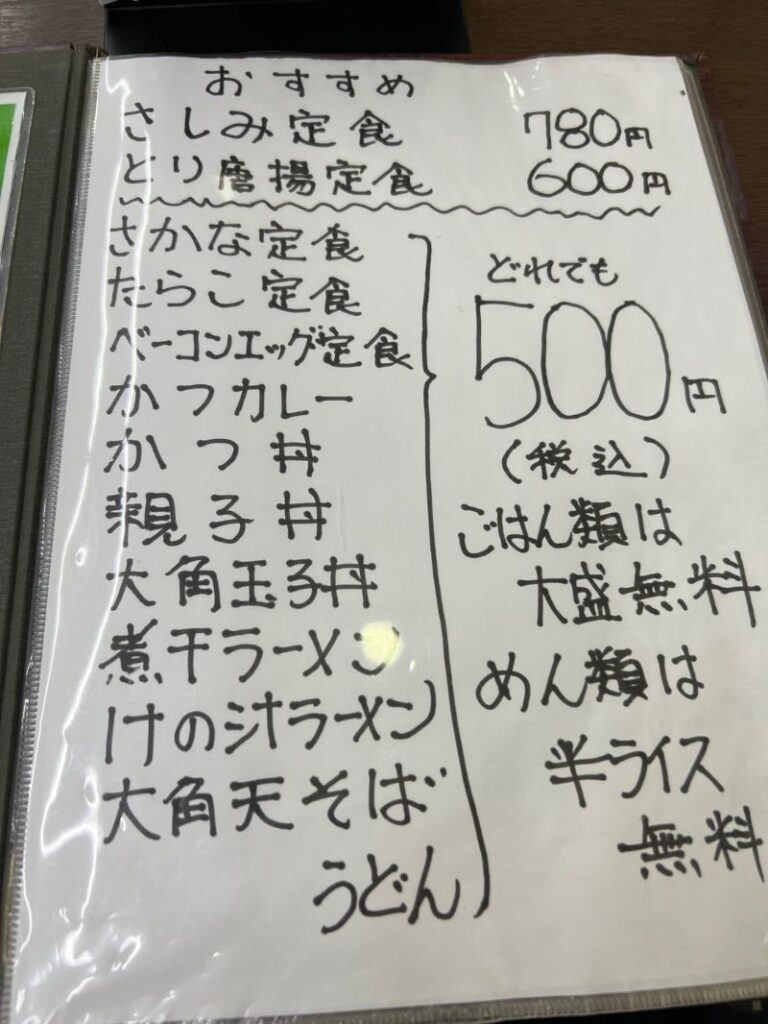 おすすめ
さしみ定食 780円
とり唐揚定食 600円
さかな定食
たらこ定食
ベーコンエッグ定食
かつカレー
かつ丼
親子丼
大角玉子丼
煮干ラーメン
けの汁ラーメン
大角天そば
うどん
どれでも
500円
(税込)
ごはん類は
大盛無料
めん類は
半ライス
無料